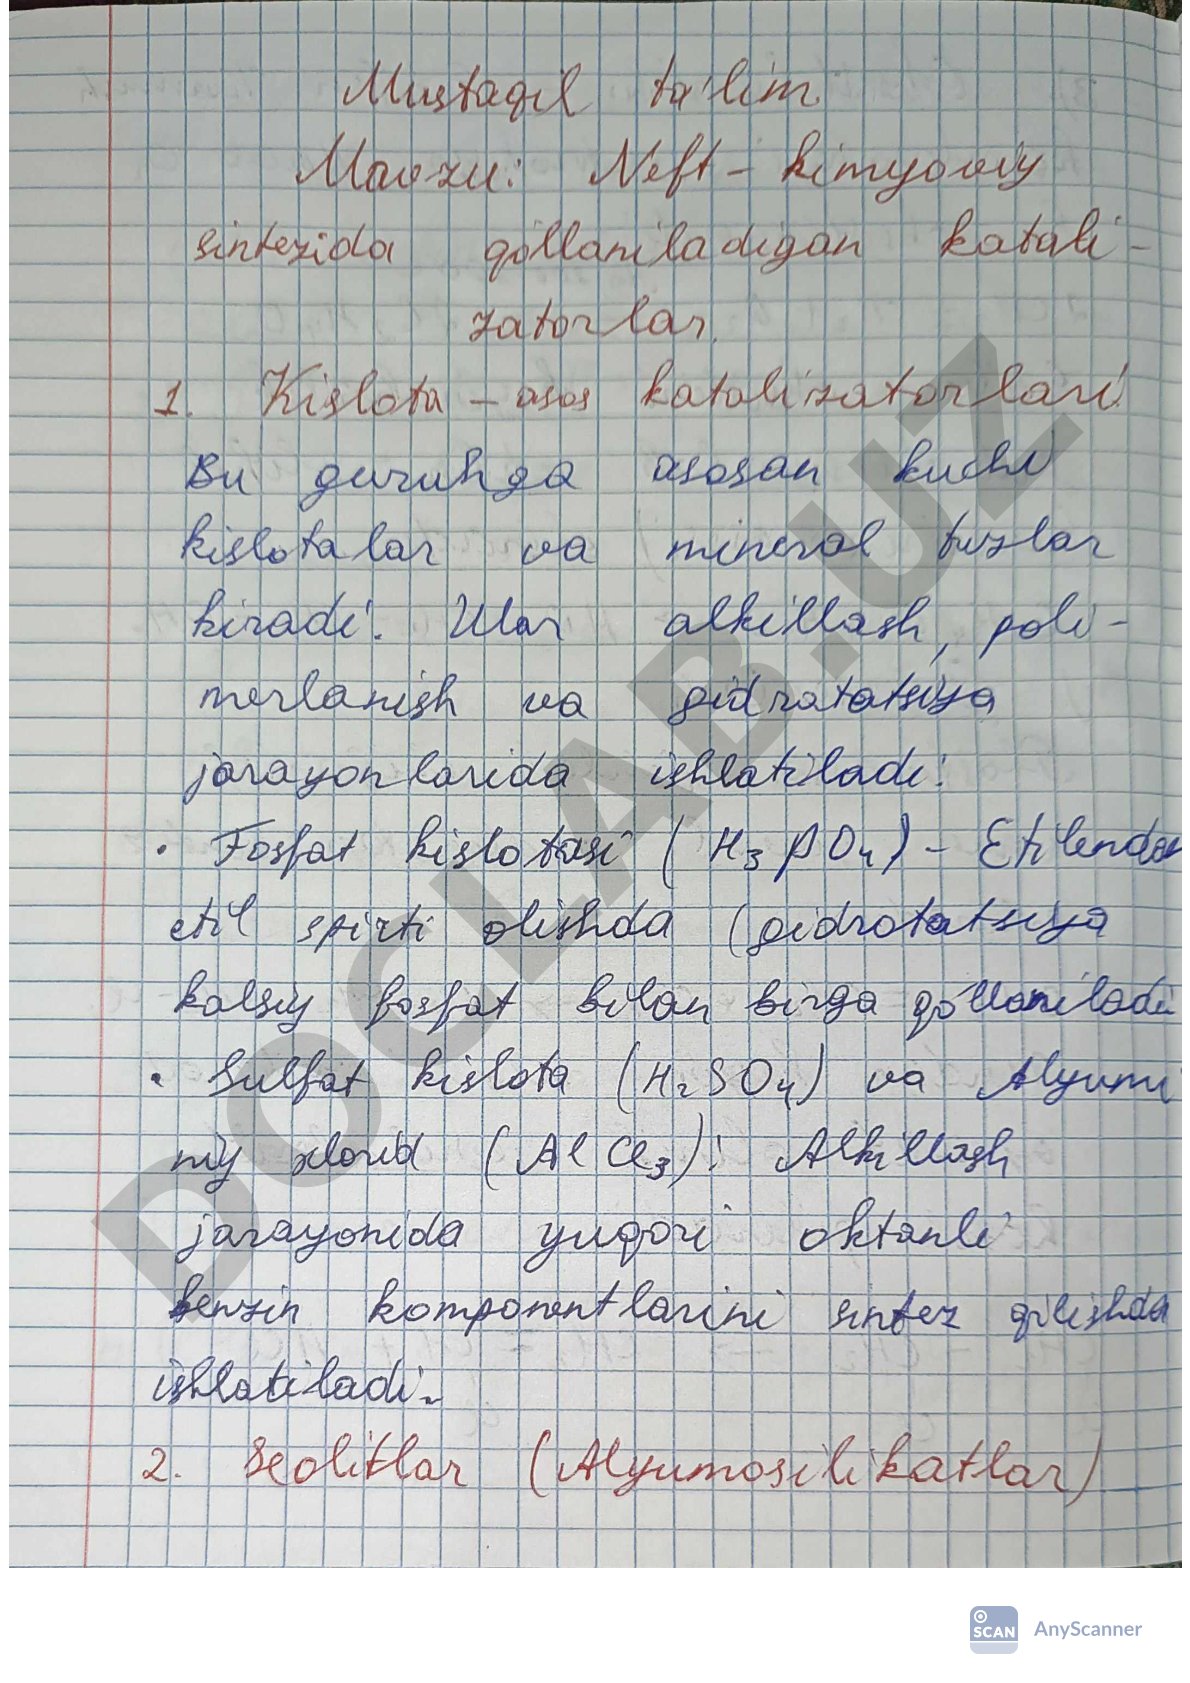 Mustaqil ta'lim
Mavzu: Neft-kimyoviy
sintezida qo'llaniladigan katali-
zatorlar.
1. Kislota-asos katalizatorlari.
Bu guruhga asosan kuchli
kislotalar va mineral tuzlar
kiradi. Ular alkillash, poli-
merlanish va gidratatsiya
jarayonlarida ishlatiladi:
• Fosfat kislotasi (H₃PO₄) - Etilendan
etil spirti olishda (gidratatsiya
kalsiy fosfat bilan birga qo'llaniladi
• Sulfat kislota (H₂SO₄) va Alyumi
niy xlorid (AlCl₃): Alkillash
jarayonida yuqori oktanli
benzin komponentlarini sintez qilishda
ishlatiladi.
2. Seolitlar (Alyumosilikatlar)
DOCLAB.UZ
SCAN AnyScanner